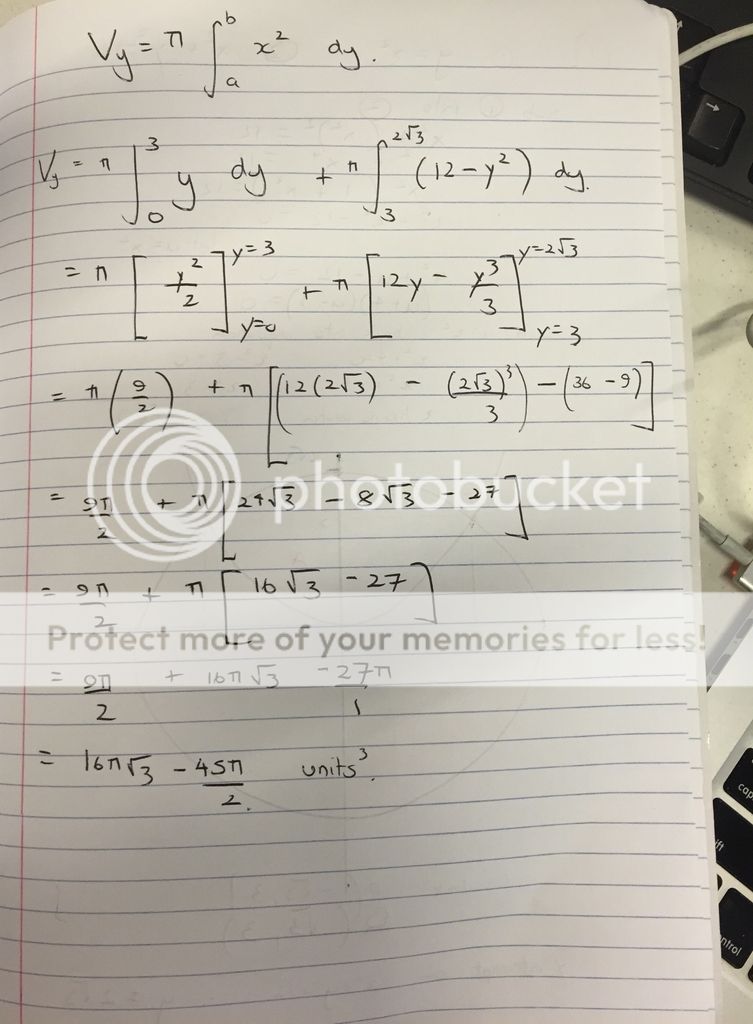 Vy = π ∫_a^b x² dy.
Vy = π ∫_0^3 y dy + π ∫_3^{2√3} (12 − y²) dy.
= π [y²/2]_{y=0}^{y=3} + π [12y − y³/3]_{y=3}^{y=2√3}
= π (9/2) + π [(12(2√3) − (2√3)³/3) − (36 − 9)]
= 9π/2 + π [24√3 − 8√3 − 27]
= 9π/2 + π [16√3 − 27]
= 9π/2 + 16π√3 − 27π/1
= 16π√3 − 45π/2 units³.
photobucket
Protect more of your memories for less!
cap
ift
ntrol